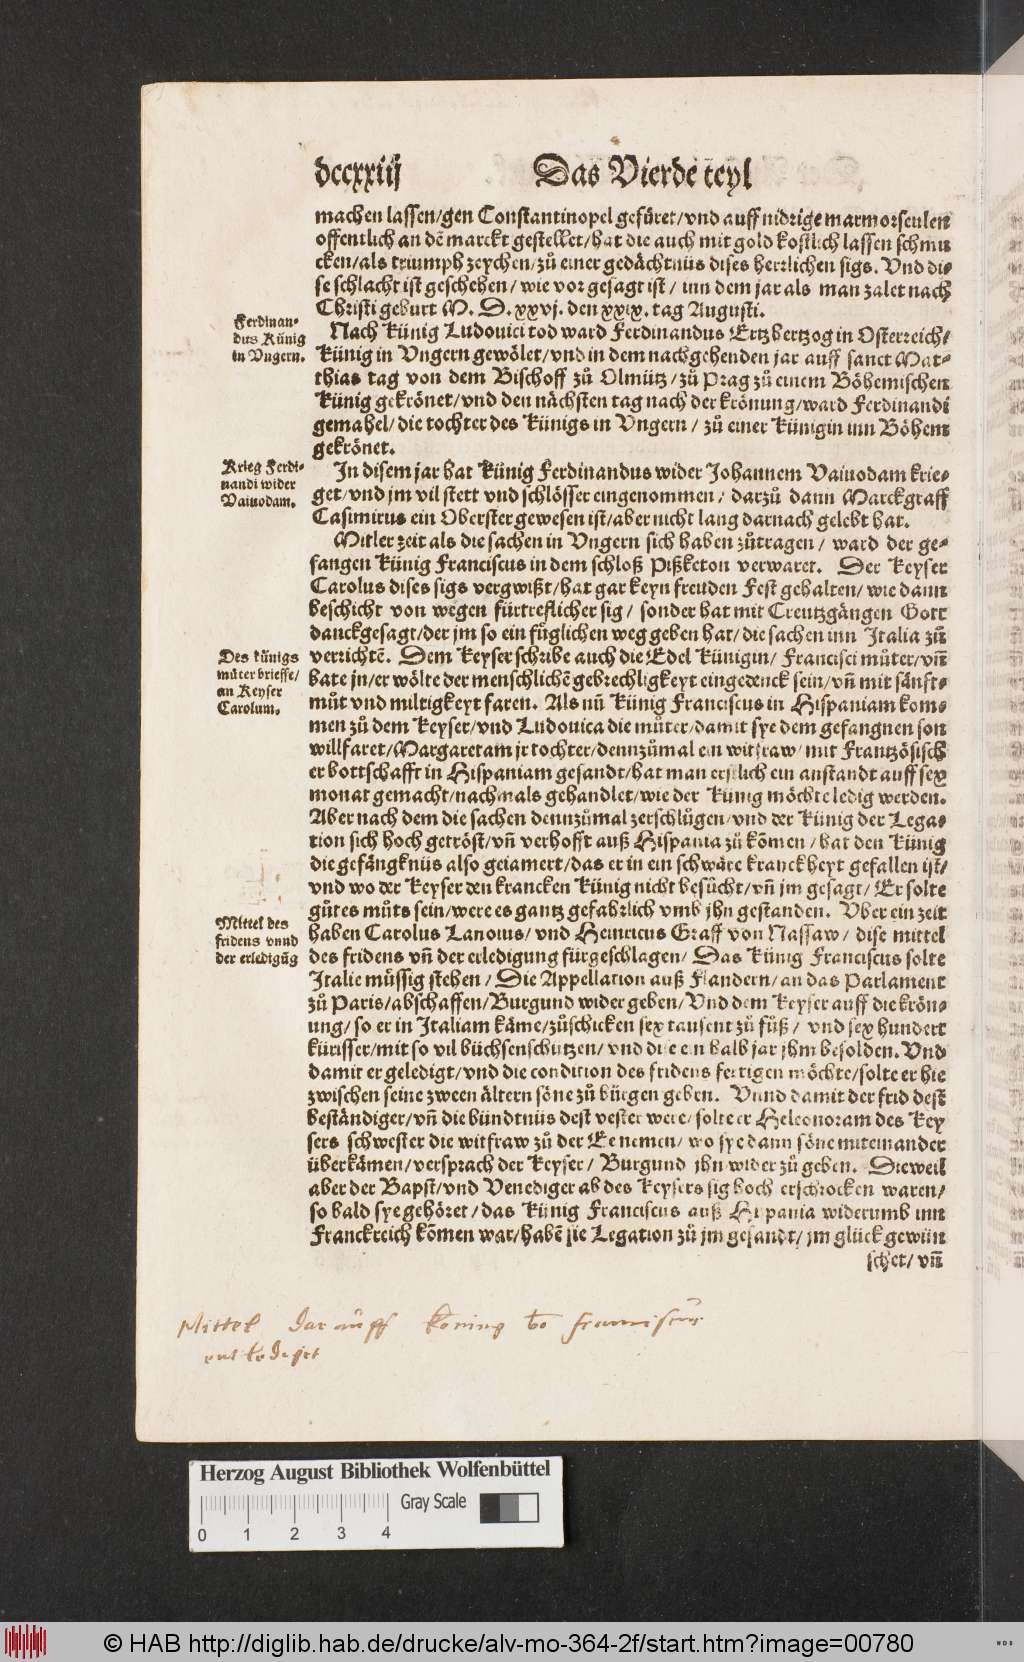 dccxxiiij Das Vierde teyl
machen lassen/gen Constantinopel gefüret/vnd auff nidrige marmorseulen
offentlich an dē marckt gestellet/hat die auch mit gold kostlich lassen schmu
cken/als triumph zeychen/zů einer gedächtnüs dises herrlichen sigs. Vnd di⸗
se schlacht ist geschehen/wie vor gesagt ist/ inn dem jar als man zalet nach
Christi geburt M. D. xxvj. den xxix. tag Augusti.
Ferdinan⸗
dus Künig
in Vngern.
Nach Künig Ludouici tod ward Ferdinandus Ertzhertzog in Osterreich/
Künig in Vngern gewölet/vnd in dem nachgehenden jar auff sanct Mat⸗
thias tag von dem Bischoff zů Olmütz/zů Prag zů einem Böhemischen
Künig gekrönet/vnd den nächsten tag nach der krönung/ward Ferdinandi
gemahel/die tochter des Künigs in Vngern/ zů einer Künigin inn Böhem
gekrönet.
Krieg Ferdi⸗
nandi wider
Vaiuodam.
In disem jar hat Künig Ferdinandus wider Johannem Vaiuodam krie⸗
get/vnd jm vil stett vnd schlösser eingenommen/ darzů dann Marckgraff
Casimirus ein Oberster gewesen ist/aber nicht lang darnach gelebt hat.
Mitler zeit als die sachen in Vngern sich haben zůtragen/ ward der ge⸗
fangen Künig Franciscus in dem schloß Pißketon verwaret. Der Keyser
Carolus dises sigs vergwißt/hat gar keyn freuden Fest gehalten/wie dann
beschicht von wegen fürtreflicher sig/ sonder hat mit Creutzgängen Gott
danckgesagt/der jm so ein füglichen weg geben hat/die sachen inn Italia zů
Des künigs
můter brieffe/
an Keyser
Carolum.
verrichtē. Dem Keyser schribe auch die Edel Künigin/ Francisci můter/vñ
bate jn/er wölte der menschlichē gebrechligkeyt eingedenck sein/vñ mit sänft⸗
můt vnd miltigkeyt faren. Als nū Künig Franciscus in Hispaniam kom⸗
men zů dem Keyser/vnd Ludouica die můter/damit sye dem gefangnen son
willfaret/Margaretam jr tochter/dennzůmal ein witfraw/mit Frantzösisch
er bottschafft in Hispaniam gesandt/hat man erstlich ein anstandt auff sex
monat gemacht/nachmals gehandlet/wie der Künig möchte ledig werden.
Aber nach dem die sachen dennzůmal zerschlůgen/vnd der Künig der Lega⸗
tion sich hoch getröst/vñ verhofft auß Hispania zů kōmen/hat den Künig
die gefängknüs also geiamert/das er in ein schwäre kranckheyt gefallen ist/
vnd wo der Keyser den krancken Künig nicht besůcht/vñ jm gesagt/Er solte
gůtes můts sein/were es gantz gefahrlich vmb jhn gestanden. Vber ein zeit
Mittel des
fridens vnnd
der erledigūg
haben Carolus Lanoius/vnd Heinricus Graff von Nassaw/ dise mittel
des fridens vñ der erledigung fürgeschlagen/ Das Künig Franciscus solte
Italie müssig stehen/ Die Appellation auß Flandern/an das Parlament
zů Paris/abschaffen/Burgund wider geben/Vnd dem Keyser auff die krön⸗
ung/so er in Italiam käme/zůschicken sex tausent zů fůß/ vnd sex hundert
kürisser/mit so vil büchsenschutzen/vnd die ein halb jar jhm besolden. Vnd
damit er geledigt/vnd die condition des fridens fertigen möchte/solte er hie
zwischen seine zween ältern söne zů bürgen geben. Vnnd damit der frid dest
beständiger/vñ die bündtnüs dest vester were/solte er Heleonoram des Key
sers schwester die witfraw zů der Ee nemen/wo sye dann söne miteinander
überkämen/versprach der Keyser/ Burgund jhn wider zů geben. Dieweil
aber der Bapst/vnd Venediger ab des Keysers sig hoch erschrocken waren/
so bald sye gehöret/das Künig Franciscus auß Hispania widerumb inn
Franckreich kōmen war/habē sie Legation zů jm gesandt/jm glück gewün
schet/vñ
Mittel darauff Köning Franciscus
Herzog August Bibliothek Wolfenbüttel
Gray Scale
0 1 2 3 4
© HAB http://diglib.hab.de/drucke/alv-mo-364-2f/start.htm?image=00780